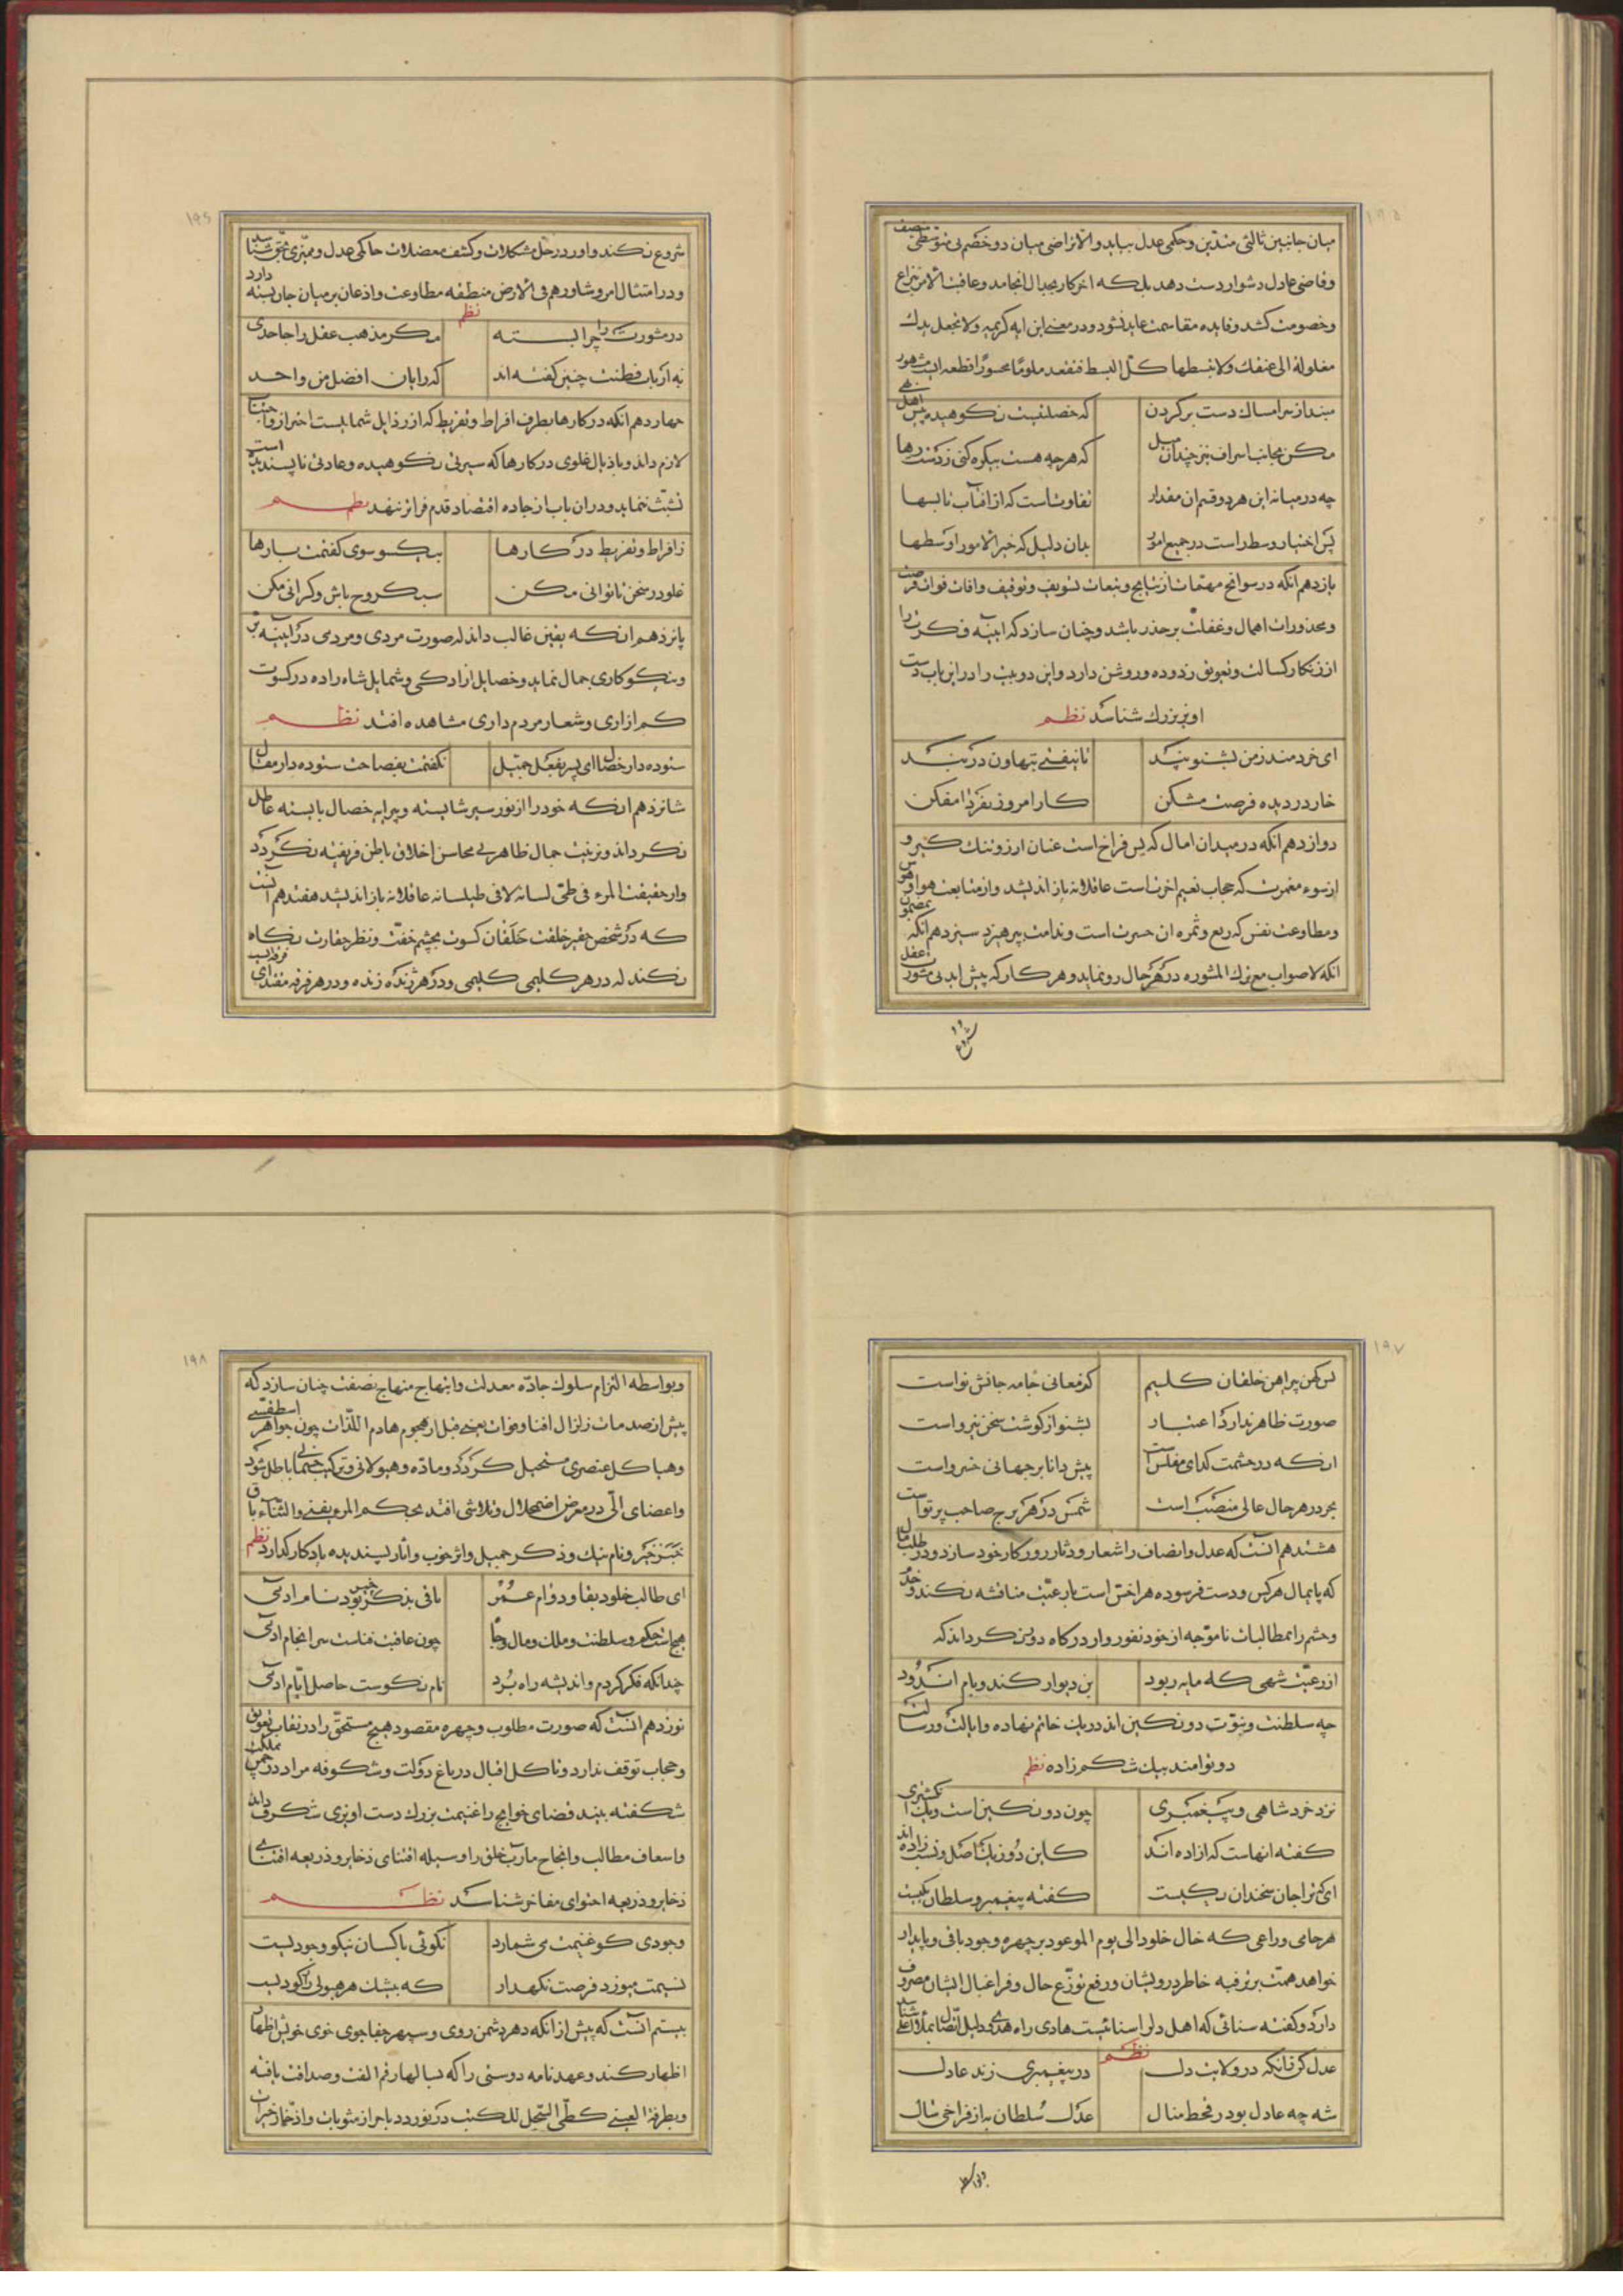 ۱۹۵
میان جانبین ثالثی متدین و حکمی عدل بباید والا تراضی میان دو خصم بی متوسطی منصف
و قاضی عادل دشوار دست دهد بلکه اخر کار بجدال انجامد و عاقبت الامر بنزاع
و خصومت کشد و فایده مقاسمت عاید نشود و در معنی این ایه کریمه ولا تجعل یدک
مغلولة الی عنقک ولا تبسطها کل البسط فتقعد ملوما محسورا قطعه ایست مشهور
مبند از سر امساک دست بر گردن که خصلتیست نکوهیده پیش اهل نهی
مکن بجانب اسراف نیز چندان میل که هرچه هست بیکره کنی ز دست رها
چه در میانه این هر دو قسم ان مقدار تفاوتست که از افتاب تا بسها
پس اختیار وسط راست در جمیع امور بدان دلیل که خیر الامور اوسطها
یازدهم انکه در سوانح مهمات از نتایج و تبعات تسویف و توقیف و افات فوات فرصت
و محذورات اهمال و غفلت بر حذر باشد و چنان سازد که ایینه فکرت را
از زنکار کسالت و تعویق زدوده و روشن دارد و این دو بیت را در این باب دست
اویز بزرک شناسد نظم
ای خردمند ز من بشنو پند تا نیفتی بتهاون در بند
خار در دیده فرصت مشکن کار امروز بفردا مفکن
دوازدهم انکه در میدان امال که بس فراخ است عنان ارزو تنک کشد و
از سوء مغمرت که حجاب نعیم اخرتست عاقلانه باز اندیشد و از متابعت هوا و هوس
و مطاوعت نفس که ریع و ثمره ان حسرت است و ندامت بپرهیزد سیزدهم انکه بمضمون
انکه لا صواب مع ترک المشوره در هر حال رو نماید و هر کار که پیش اید بی مشورت عقل
شروع
۱۹۶
شروع نکند و اورا در حل مشکلات و کشف معضلات حاکمی عدل و ممیزی محق شناسد
و در امتثال امر وشاورهم فی الارض منطقه مطاوعت و اذعان بر میان جان بسته دارد
نظم
در مشورت را چرا بسته مکر مذهب عقل را جاحدی
نه ارباب فطنت چنین کفته اند که رایان افضل من واحد
چهاردهم انکه در کارها بطرف افراط و تفریط که از رذایل شمایلست احتراز و اجتناب
لازم داند و باذیال غلوی در کارها که سیرتی نکوهیده و عادتی ناپسندیده است
تشبث ننماید و در ان باب از جاده اقتصاد قدم فراتر ننهد نظم
ز افراط و تفریط در کارها بیکسو سوی کفتمت بارها
غلو در سخن تا توانی مکن سبکروح باش و کرانی مکن
پانزدهم انکه یقین غالب داند که صورت مردی و مردمی در ایینه بر
و نیکوکاری جمال نماید و خصایل ازادکی و شمایل شاه زاده در کسوت
کم ازاری و شعار مردم داری مشاهده افتد نظم
ستوده دار خصال ای پسر بفعل جمیل نکفتمت بفصاحت ستوده دار مقال
شانزدهم انکه خود را از نور سیر شایسته و پیرایه خصال بایسته عاطل
نکرداند و بزینت جمال ظاهر بی محاسن اخلاق باطن فریفته نکردد
و از حقیقت المرء فی طی لسانه لا فی طیلسانه عاقلانه باز اندیشد هفتدهم انست
که در شخص حقیر خلقت خلقان کسوت بچشم خفت و نظر حقارت نکاه
نکند که در هر کلیمی کلیمی و در هر ژنده زنده و در هر فرقه مقتدای فرقه ایست
۱۹۷
بس کهن پیراهن خلقان کلیم کز معانی جامه جانش نو است
صورت ظاهر ندارد اعتبار بشنو از کوشت سخن نیرو است
انکه در حشمت کدای مفلس است پیش دانا بر جهانی خسرو است
بحر در هر حال عالی منصب است شمس در هر برج صاحب پرتو است
هشتدهم انست که عدل و انصاف را شعار و دثار روزکار خود سازد و در طلب مال
که پایمال هرکس و دست فرسوده هر اخس است با رعیت مناقشه نکند و خدم
و حشم را بمطالبات نا موجه از خود نفور و از درکاه دور نکرداند که
از رعیت شهی که مایه ربود بن دیوار کند و بام اندود
چه سلطنت و نبوت دو نکین اند در یک خاتم نهاده و ایالت و رسالت
دو توامند بیک شکم زاده نظم
نزد خرد شاهی و پیغمبری چون دو نکین است و یک انکشتری
کفته انهاست که ازاده اند کاین دو ز یک اصل و نسب زاده اند
ای که ترا جان سخندان یکیست کفته پیغمبر و سلطان یکیست
هر حامی و راعی که خال خلود الی یوم الموعود بر چهره وجود باقی و پایدار
خواهد همت بر ترفیه خاطر درویشان و رفع توزع حال و فراغبال ایشان مصروف
دارد و کفته سنائی که اهل دلرا سنائیست هادی راه هدی و دلیل اتصال بملاء اعلی شناسد
نظم
عدل کن زانکه در ولایت دل در پیغمبری زند عادل
شه چه عادل بود ز قحط منال عدل سلطان به از فراخی سال
وبواسطه
۱۹۸
وبواسطه التزام سلوک جاده معدلت و ابتهاج منهاج نصفت چنان سازد که
پیش از صدمات زلزال افنا و فوات یعنی قبل از هجوم هادم اللذات چون جواهر اسطقسی
وهبا کل عنصری مستحیل کردد و ماده و هیولانی و ترکیب جسمانی باطل شود
واعضای الی در معرض اضمحلال و تلاشی افتد بحکم المرء یفنی والثناء باق
خیر و نام نیک و ذکر جمیل و اثر خوب و اثار پسندیده یادکار کذارد نظم
ای طالب خلود بقا و دوام عمر باقی بذکر خیر بود نام ادمی
هیچ است حکم و سلطنت و ملک و مال و جاه چون عاقبت فناست سرانجام ادمی
چندانکه فکر کردم و اندیشه راه برد نام نکوست حاصل ایام ادمی
نوزدهم انست که صورت مطلوب و چهره مقصود هیچ مستحقی را در نقاب تعویق
و حجاب توقف ندارد و تا کل اقبال در باغ دولت و شکوفه مراد در چمن مملکت
شکفته بیند قضای حوایج را غنیمت بزرک دست اویزی شکرف داند
و اسعاف مطالب و انجاح مارب خلق را وسیله اقتنای ذخایر و ذریعه اقتنای
ذخایر و ذریعه احتوای مفاخر شناسد نظم
وجودی کو غنیمت می شمارد نکوئی با کسان نیکو وجودیست
نسیمت میوزد فرصت نکهدار که بیشک هر هبوبی را رکودیست
بیستم انست که پیش از انکه دهر دشمن روی و سپهر جفا جوی خوی خویش اظهار
اظهار کند و عهد نامه دوستی را که بسالها رقم الفت و صداقت یافته
وبطرفة العینی کطی السجل للکتب در نوردد باحراز مثوبات و ادخار خیرات